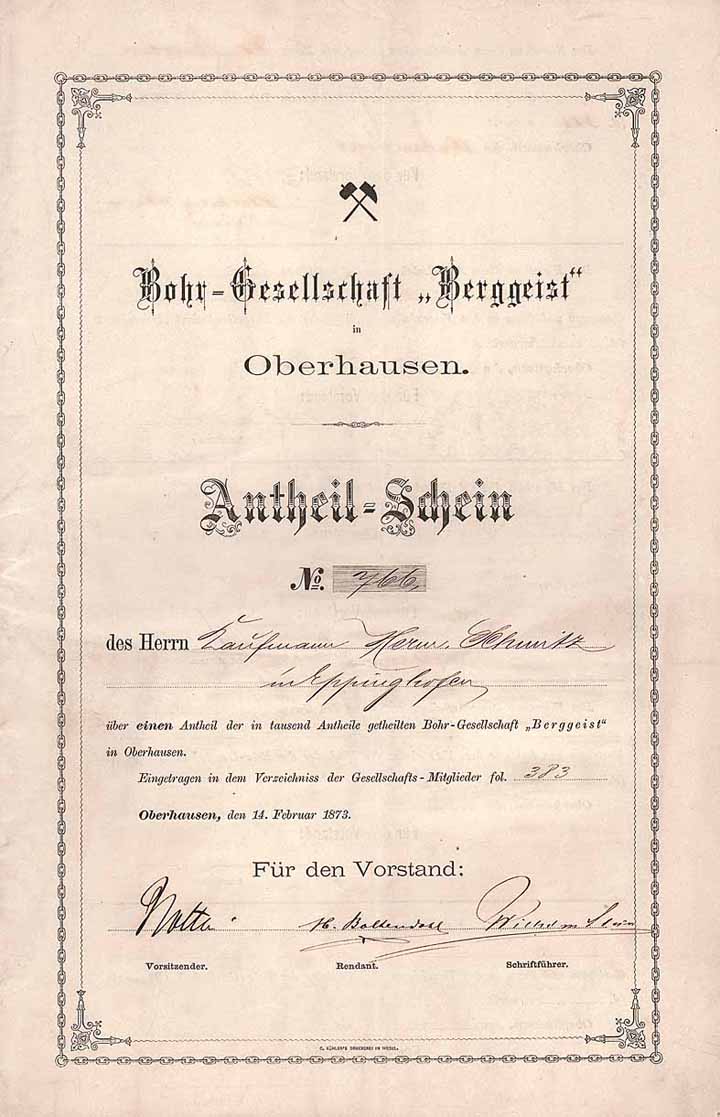 Bohr-Gesellschaft „Berggeist“
in
Oberhausen.
Antheil-Schein
No. 766,
des Herrn Kaufmann Herm. Schmitz
in Eppinghofen
über einen Antheil der in tausend Antheile getheilten Bohr-Gesellschaft „Berggeist“
in Oberhausen.
Eingetragen in dem Verzeichniss der Gesellschafts-Mitglieder fol. 383
Oberhausen, den 14. Februar 1873.
Für den Vorstand:
H. Wilhelm
Vorsitzender. Rendant. Schriftführer.
C. KÜHLER'S DRUCKEREI IN WESEL.